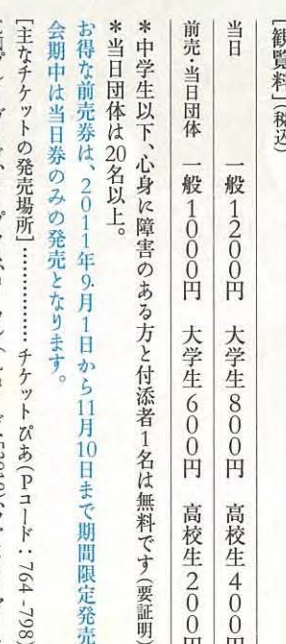 ［観覧料］（税込）
当日　一般1200円　大学生800円　高校生400円
前売・当日団体　一般1000円　大学生600円　高校生200円
＊中学生以下、心身に障害のある方と付添者1名は無料です（要証明）
＊当日団体は20名以上。
お得な前売券は、2011年9月1日から11月10日まで期間限定発売
会期中は当日券のみの発売となります。
［主なチケットの発売場所］……………チケットぴあ（Pコード：764-798）